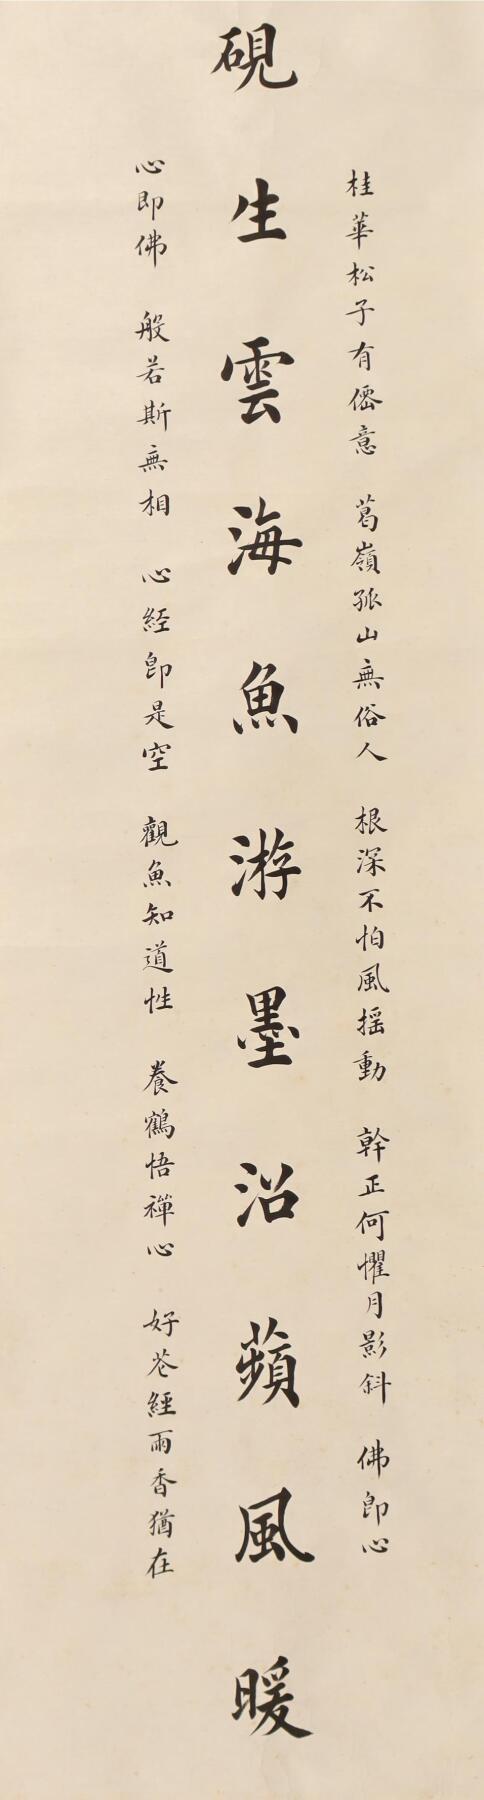 硯生雲海魚游墨沼蘋風暖
桂華松子有僊意 葛嶺孤山無俗人 根深不怕風搖動 幹正何懼月影斜 佛即心
心即佛 般若斯無相 心経即是空 觀魚知道性 養鶴悟禪心 好花經雨香猶在